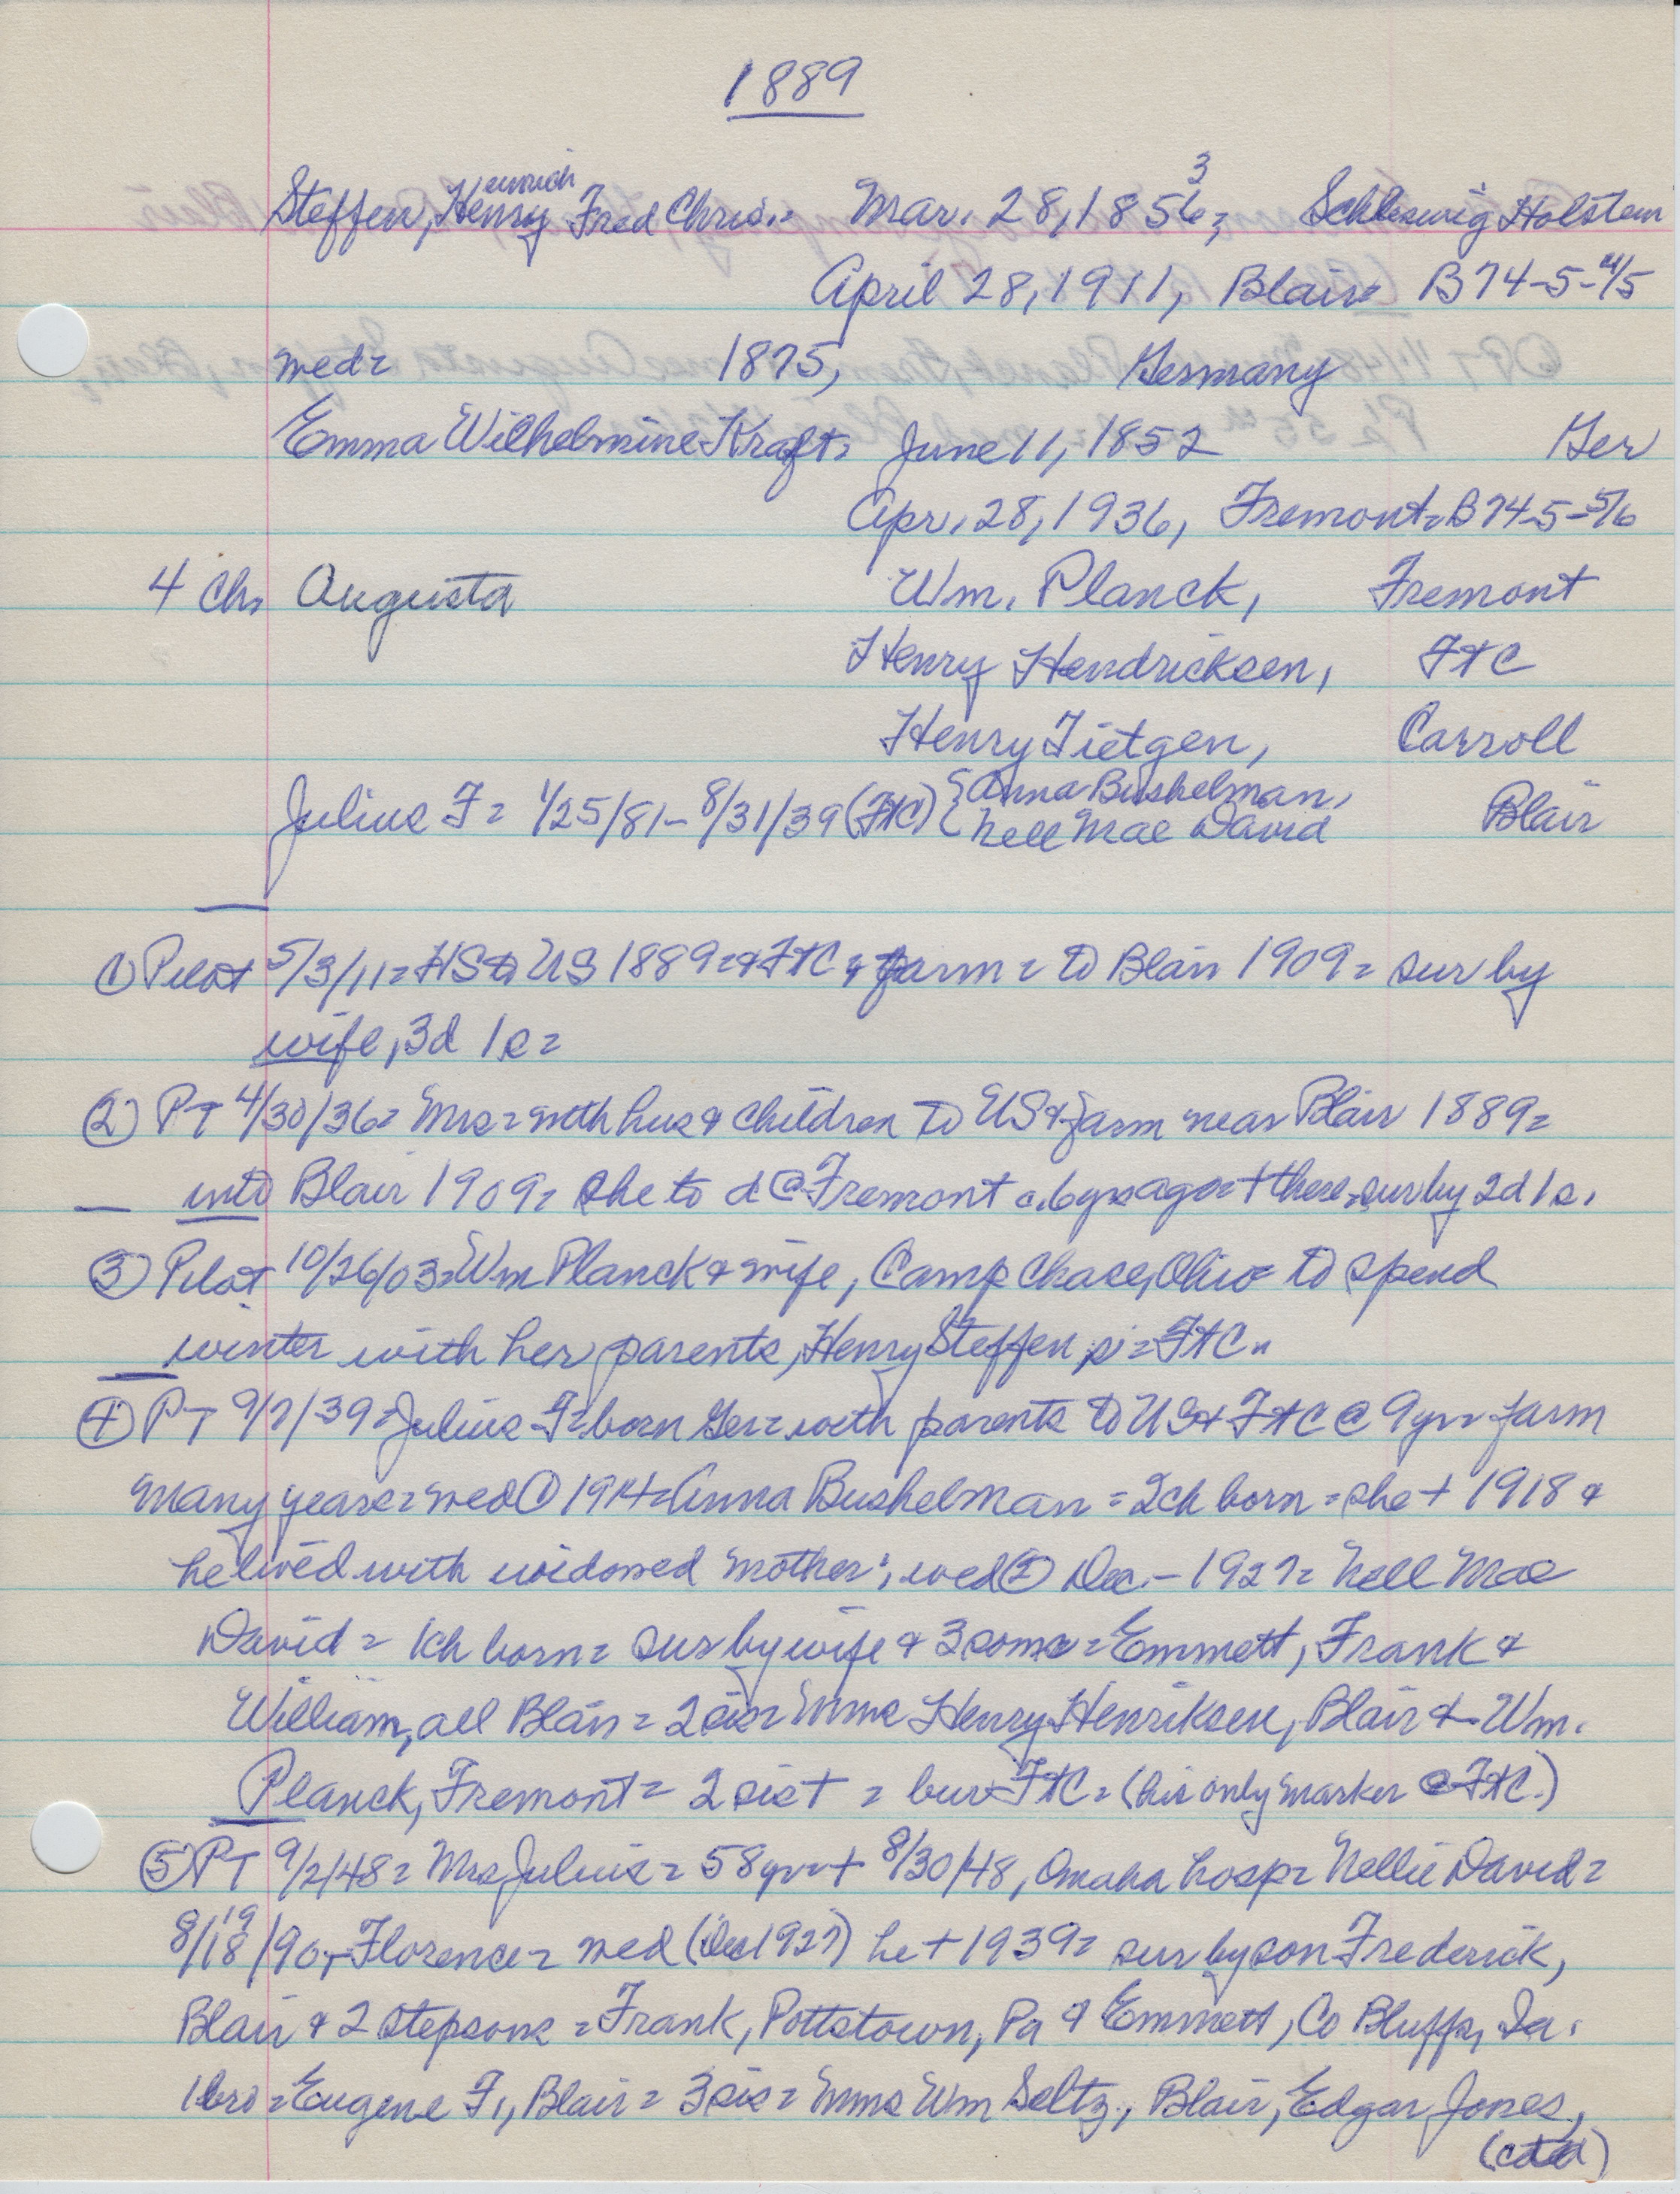 1889
Steffen, Henry Heinrich Fred Chris. = Mar. 28, 1856 3; Schleswig Holstein
April 28, 1911, Blair = B74-5-4/5
wed = 1875, Germany
Emma Wilhelmine Kraft = June 11, 1852 Ger
Apr. 28, 1936, Fremont = B74-5-5/6
4 Ch = Augusta Wm. Planck, Fremont
Henry Hendricksen, FtC
Henry Tietgen, Carroll
Julius F = 1/25/81 - 8/31/39 (FtC) { Anna Bushelman, Blair
Nell Mae David
① Pilot 5/3/11 = HS to US 1889 = & FtC & farm = to Blair 1909 = sur by
wife, 3d 1s =
② PT 4/30/36 = Mrs = with hus & children to US & farm near Blair 1889 =
into Blair 1909 = she to d @ Fremont c. 6 yrs ago = + there = sur by 2d 1s.
③ Pilot 10/26/03 = Wm Planck & wife, Camp Chase, Ohio to spend
winter with her parents, Henry Steffen, s = FtC =
④ PT 9/7/39 = Julius F = born Ger = with parents to US & FtC @ 9 yr = farm
many years = wed ① 1914 = Anna Bushelman = 2ch born = she + 1918 &
he lived with widowed mother; wed ② Dec. - 1927 = Nell Mae
David = 1ch born = sur by wife & 3 sons = Emmett, Frank &
William, all Blair = 2 sis = Mmes Henry Henriksen, Blair & Wm.
Planck, Fremont = 2 sis + = bur FtC = (his only marker @ FtC.)
⑤ PT 9/2/48 = Mrs Julius = 58 yr = + 8/30/48, Omaha hosp = Nellie David =
8/18 19/90, Florence = wed (Dec 1927) he + 1939 = sur by son Frederick,
Blair & 2 stepsons = Frank, Pottstown, Pa & Emmett, Co Bluffs, Ia.
1 bro = Eugene F., Blair = 3 sis = Mmes Wm Seltz, Blair, Edgar Jones,
(ctd)